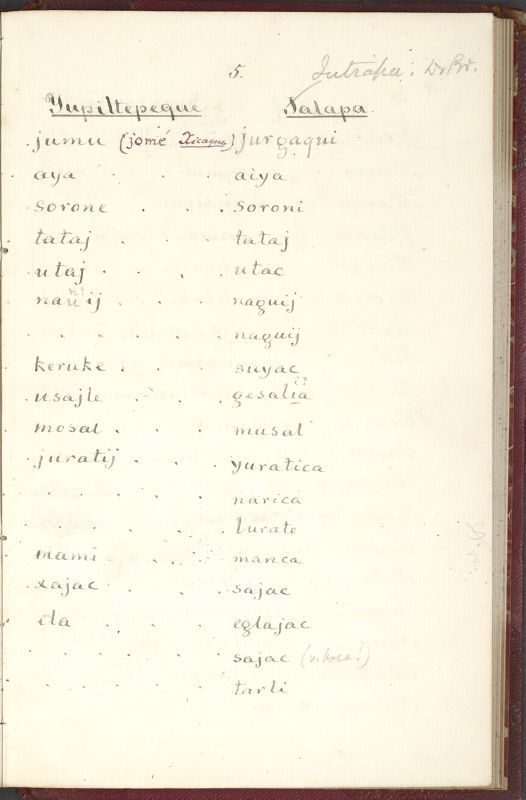 5. Jutiapa: Dr Br.
Yupiltepeque Jalapa.
jumu (jomé Xicaque) jurgaqui
aya . . . aiya
sorone . . . soroni
tataj . . . tataj
utaj . . . utac
nauij . . . naguij
. . . . . . naguij
keruke . . . suyac
usajle . . . gesalia
mosal . . . musal
juratij . . . yuratica
. . . . . narica
. . . . . lurate
mami . . . manca
xajac . . . sajac
ela . . . eglajac
. . . . . sajac (v. boca!)
. . . . . tarli